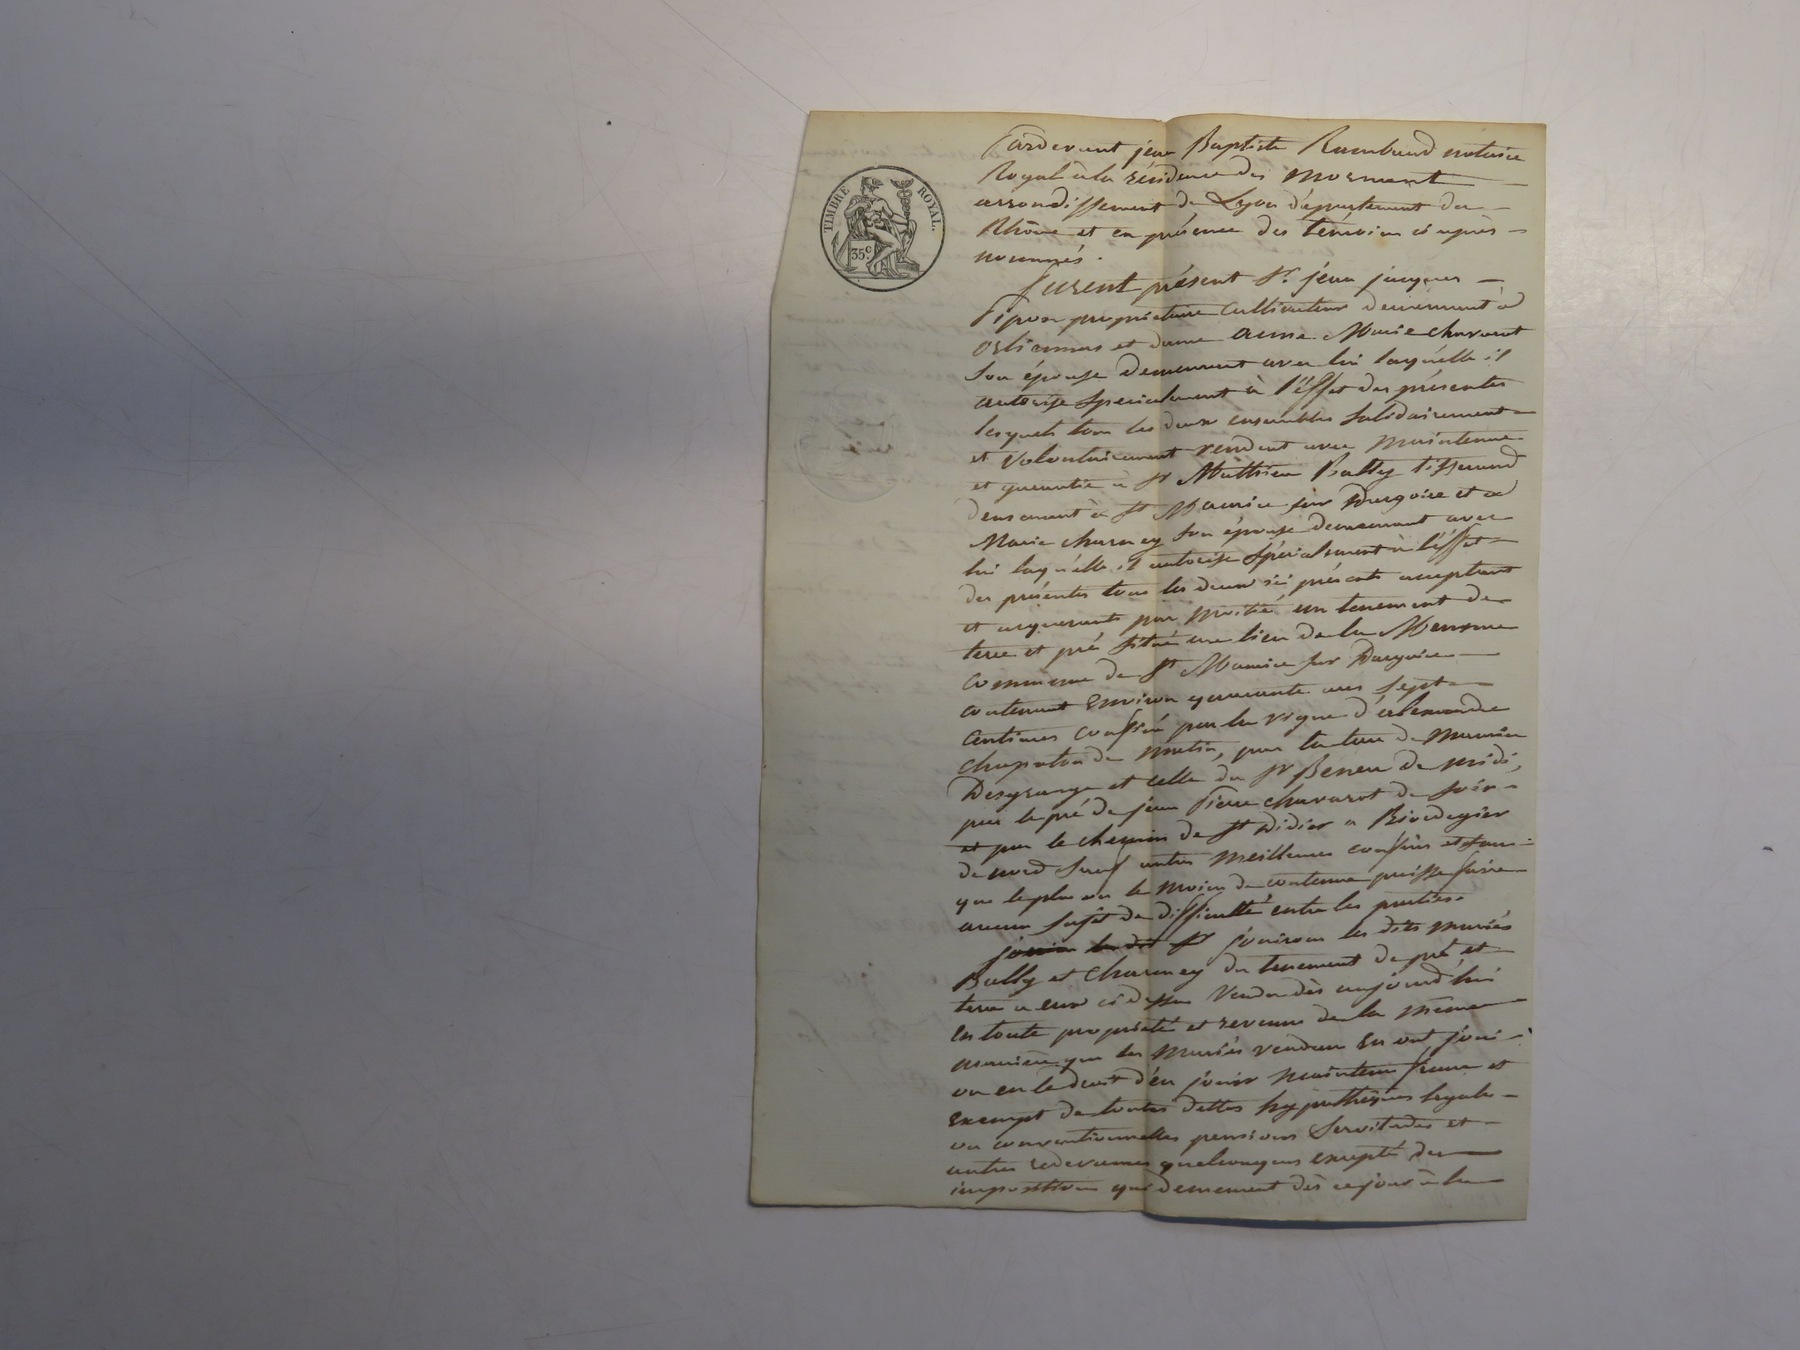 TIMBRE ROYAL.
35c
Pardevant jean Baptiste Rambaud notaire
Royal à la résidence des mornant
arrondissement de Lyon département du
Rhône et en présence des témoins ci après
nommés.
furent présent Sr. jean jacques
Pipon propriétaire cultivateur demeurant à
orliennas et dame anne Marie charvent
son épouse demeurant avec lui laquelle il
autorise specialement à l'éffet des présentes
lesquels tous les deux ensembles solidairement
et volontairement vendent avec maintenue
et garantie a Sr Mathieu Bally tisserand
demeurant à St Maurice sur Dargoire et a
Marie charney son épouse demeurant avec
lui laquelle il autorise spécialement à l'éffet
des présentes tous les deux ici présents acceptant
et acquerants par moitié, un tenement de
terre et pré situé au lieu de la
commune de St Maurice sur Dargoire
contenant environ quarante ares sept
centiares confiné par la vigne d'
chapoton de matin, par la terre de
Desgrange et celle du Sr de midi,
par le pré de jean Pierre chavarot de soir
et par le chemin de St Didier a Rivedegier
de nord sauf autres meilleures confins et sans
que le plus ou le moins de contenue puisse faire
aucun sujet de difficulté entre les parties.
jouira le dit Sr jouiront les dits mariés
Bally et Charney du tenement de pré et
terre a eux ci dessus vendu dès aujourd'hui
en toute propriété et revenu de la même
manière que les mariés vendeurs en ont joui
ou eu le droit d'en jouir maintenu franc et
exempt de toutes dettes hypothèques legales
ou conventionnelles pensions servitudes et
autres redevances quelconques excepté des
impositions qui demeurent dès ce jour à la